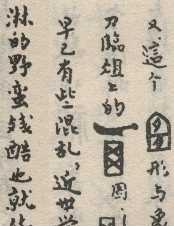 又、這个形与
刀臨俎上的图
早已有些混乱，近世
淋的野蛮残酷也就